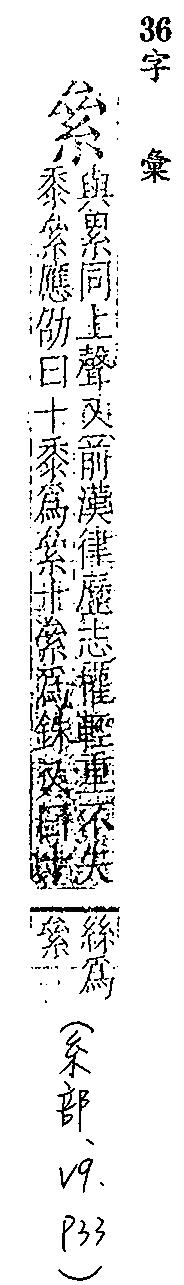 36字 彙
絫
與累同上聲又前漢律歷志權輕重不失
黍絫應劭曰十黍爲絫十絫爲銖又曰
絲爲
絫
(糸部、V9. P33)